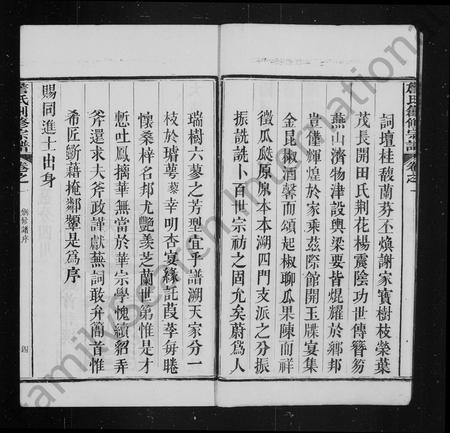 詹氏創修宗譜 卷之一
詞壇桂馥蘭芬不煥謝家寶樹枝榮葉
茂長開田氏荊花楊震陰功世傳簪笏
燕山濟物津設輿梁要皆焜耀於鄉邦
豈僅輝煌於家乘茲際館開玉牒宴集
金昆椒酒馨而頌起椒聊瓜果陳而祥
徵瓜瓞原原本本溯四門支派之分振
振詵詵卜百世宗祊之固尤矣蔚為人
瑞樹六蓼之芳型宜乎譜溯天家分一
枝於璿萼 幸明杏宴緣託葭莩每睠
懷桑梓名邦尤艷羨芝蘭世第惟是才
慙吐鳳摛華無當於華宗學愧續貂弄
斧還求夫斧政謹獻蕪詞敢弁簡首惟
希匠斲藉掩鄰顰是為序
賜同進士出身
詹氏創修宗譜 卷之一 創修譜序 四
FamilySearch International